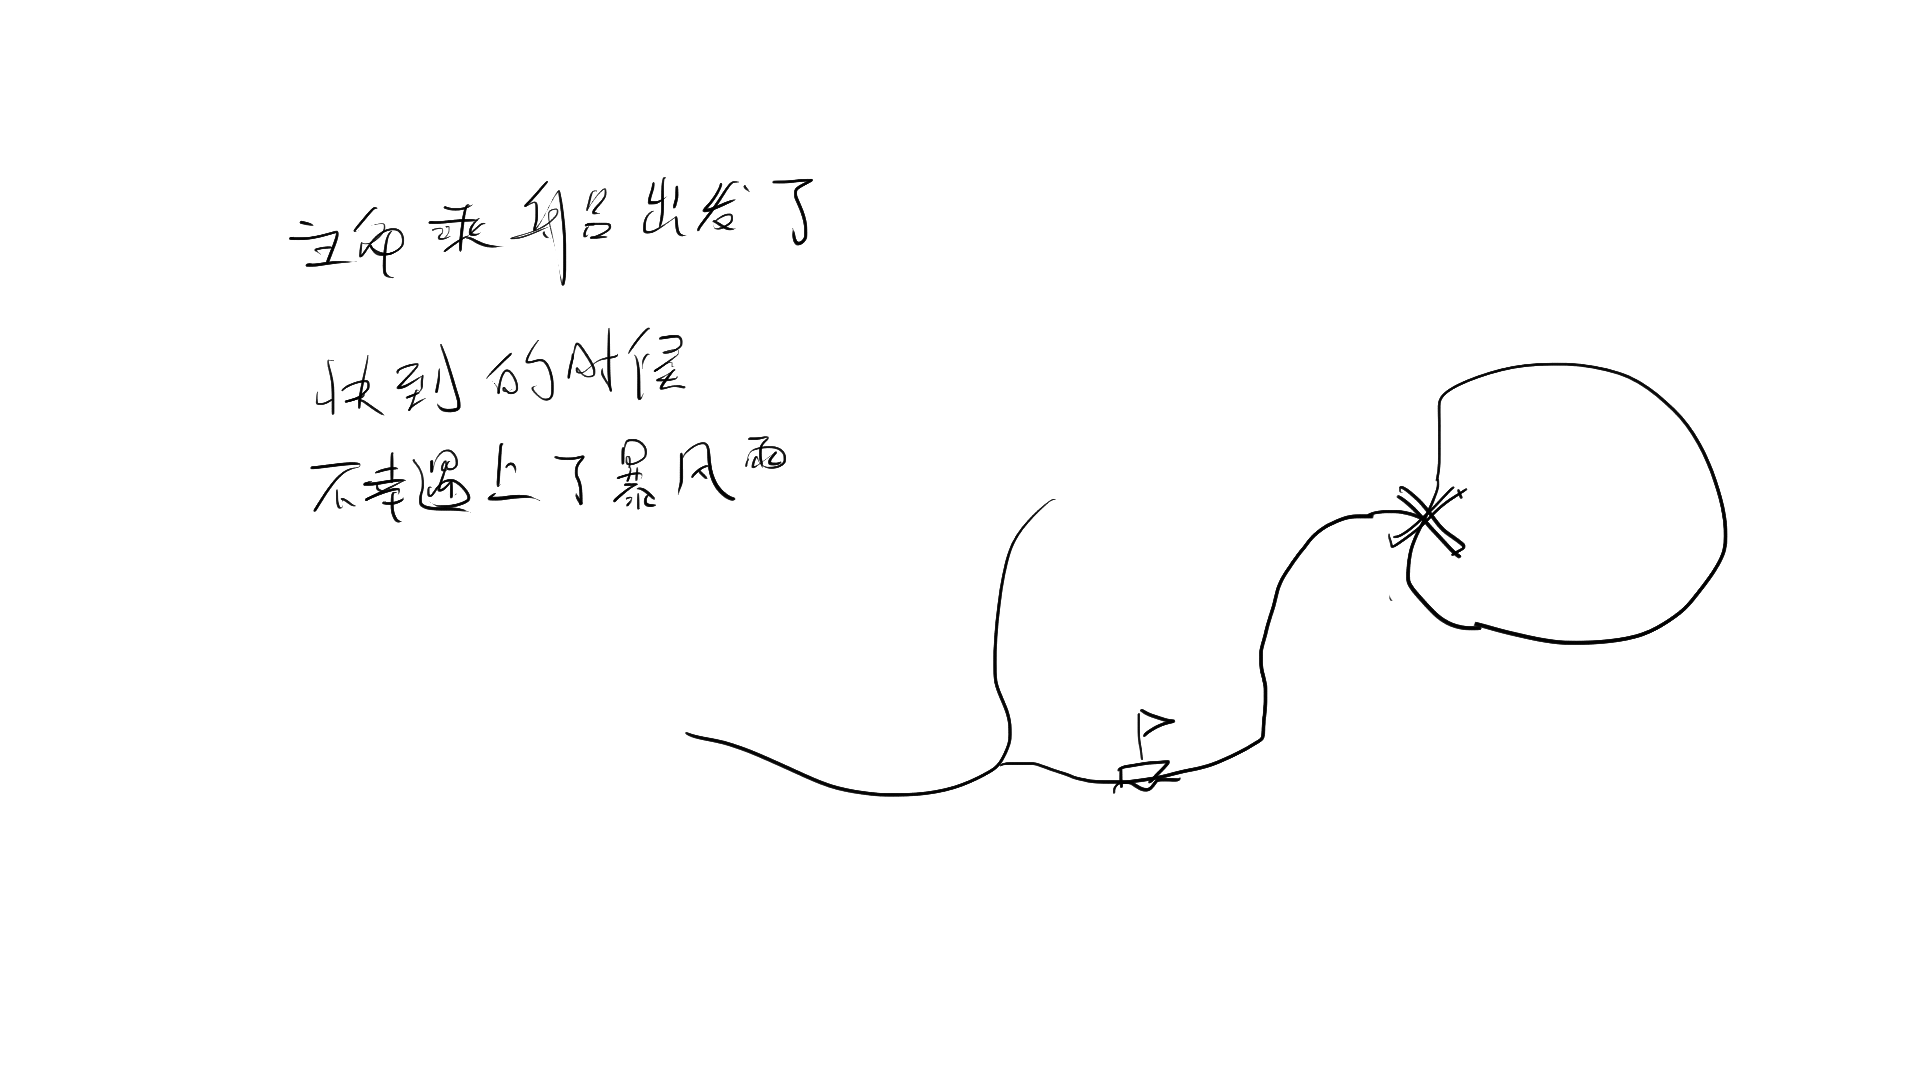 主角乘船出发了
快到的时候
不幸遇上了暴风雨